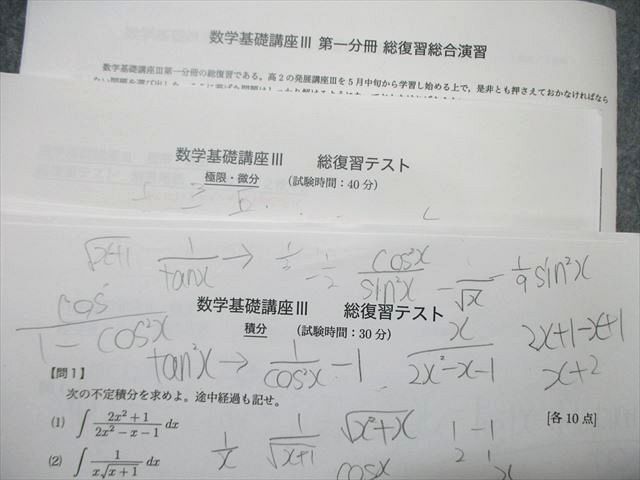 数学基礎講座Ⅲ 第一分冊 総復習総合演習
数学基礎講座Ⅲ第一分冊の総復習である。高2の発展講座Ⅲを5月中旬から学習し始める上で，是非とも押さえておかなければなら
数学基礎講座Ⅲ 総復習テスト
極限・微分 (試験時間：40分)
√x+1 1/tanx → 1/2 -1/2 cos²x/sin²x 1/√x -1/9 sin²x
cos/1-cos²x
数学基礎講座Ⅲ 総復習テスト
積分 (試験時間：30分)
tan²x → 1/cos²x -1 x/2x²-x-1 2x+1-x+1
x+2
【問1】
次の不定積分を求めよ。途中経過も記せ。
[各10点]
(1) ∫ 2x²+1/2x²-x-1 dx
(2) ∫ 1/x√x+1 dx
1/x 1/√x+1 √x²+x 1 -1
2 1
cosx x